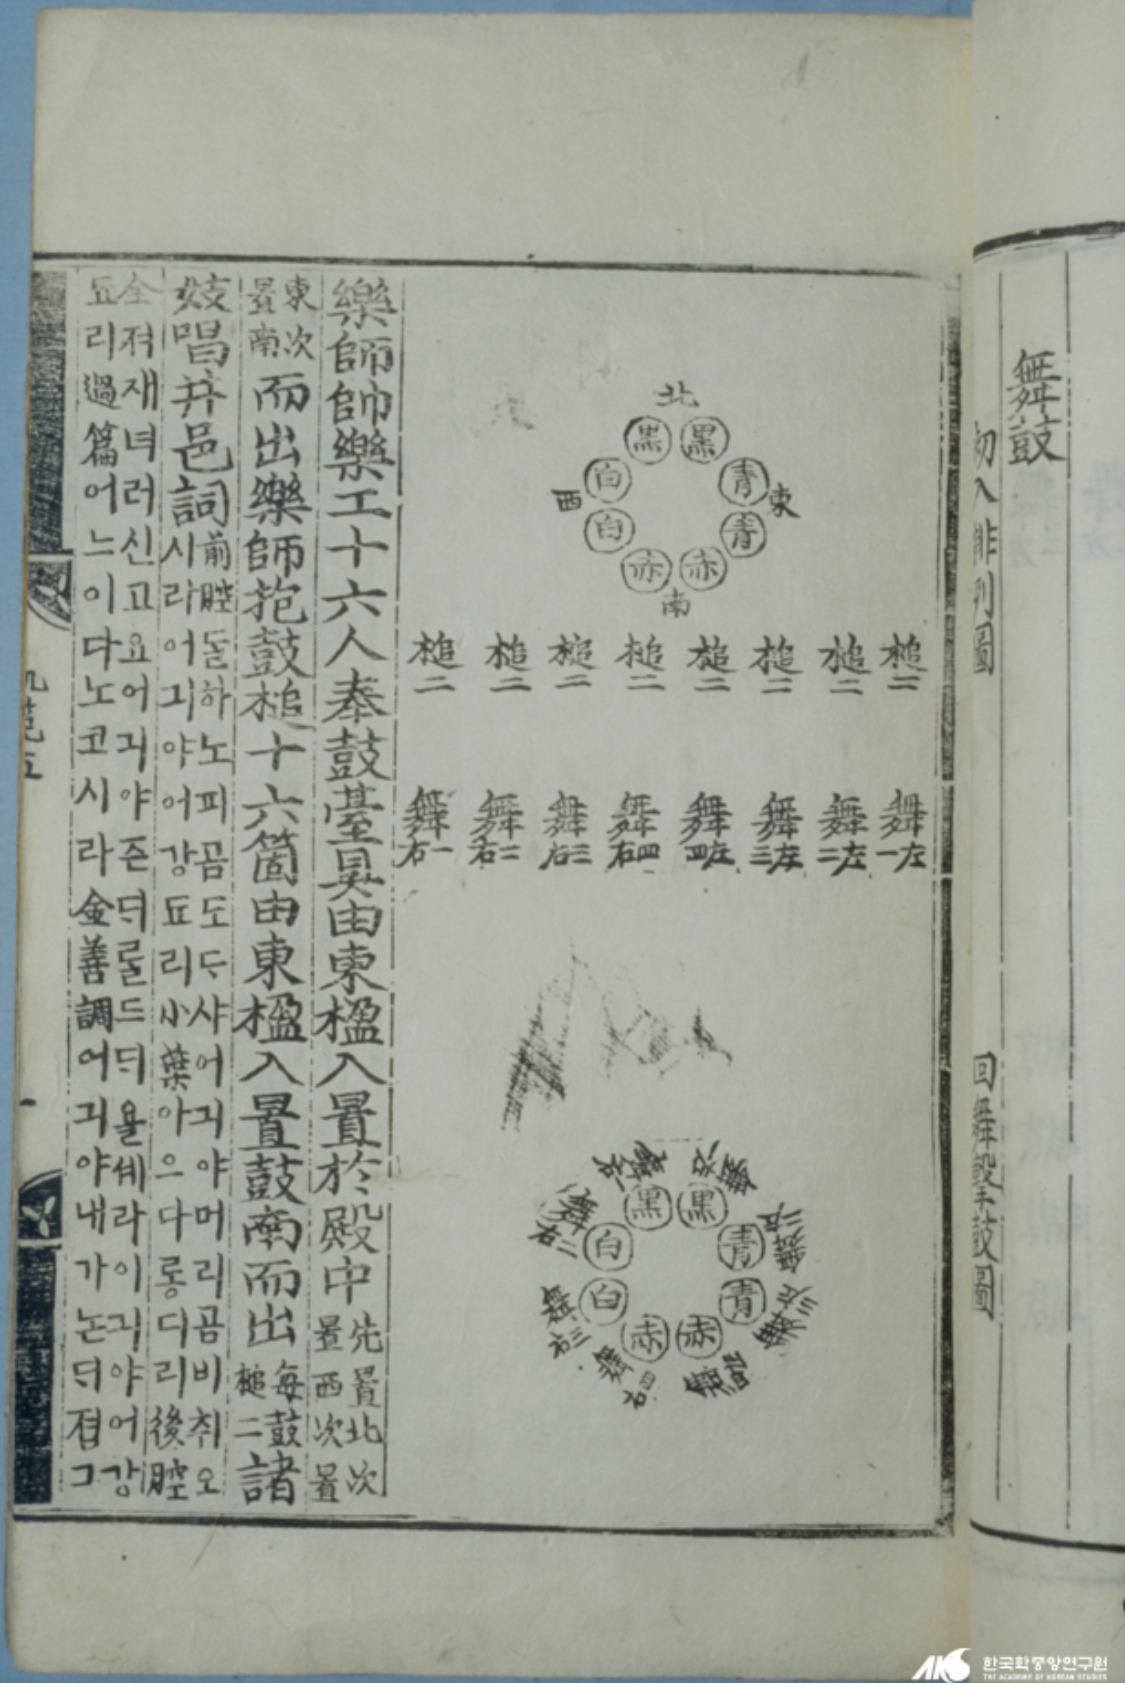 舞鼓
初入排列圖
回舞擊鼓圖
北
黑 黑
白 青
西 東
白 青
赤 赤
南
槌二 槌二 槌二 槌二 槌二 槌二 槌二 槌二
舞左一 舞左二 舞左三 舞左四 舞右四 舞右三 舞右二 舞右一
黑 黑
白 青
白 青
赤 赤
舞右二
舞右三
舞右四
樂師帥樂工十六人奉鼓臺具由東楹入置於殿中先置北次置西次置
東次置南而出樂師抱鼓槌十六箇由東楹入置鼓南而出每鼓槌二諸
妓唱井邑詞前腔ᄃᆞᆯ하노피곰도ᄃᆞ샤어긔야머리곰비취오시라어긔야어강됴리小葉아으다롱디리後腔
全져재녀러신고요어긔야즌ᄃᆡᄅᆞᆯ드ᄃᆡ욜셰라어긔야어강됴리過篇어느이다노코시라金善調어긔야내가논ᄃᆡ졈그